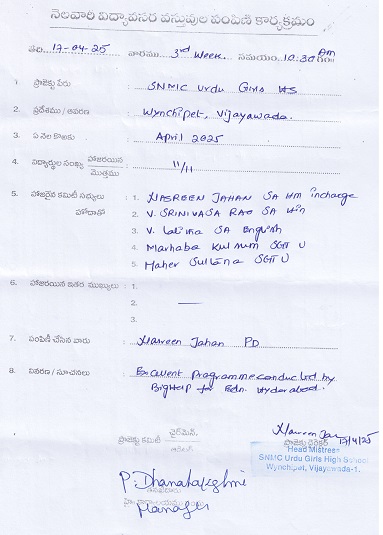 నెలవారి విద్యావసర వస్తువుల పంపిణీ కార్యక్రమం
తేది 17-04-25 వారము 3rd Week. సమయం 10:30 Am గం॥
1. ప్రాజెక్టు పేరు : SNMC Urdu Girls HS
2. ప్రదేశము / ఆవరణ : Wynchipet, Vijayawada.
3. ఏ నెల కొరకు : April 2025
4. విద్యార్థుల సంఖ్య హాజరయిన / మొత్తము : 11/11
5. హాజరైన కమిటీ సభ్యులు : 1. NASREEN JAHAN SA HM incharge
హోదాతో 2. V. SRINIVASA RAO SA Hin
3. V. Latha SA English
4. Marhaba Kulsum SGT U
5. Maher Sultana SGT U
6. హాజరయిన ఇతర ముఖ్యులు : 1.
2. —
3.
7. పంపిణీ చేసిన వారు : Nasreen Jahan PD
8. వివరణ / సూచనలు : Excellent Programme conducted by
BigHelp for Edn. Hyderabad.
ప్రాజెక్టు కమిటీ ఛైర్మెన్.
Nasreen Jan 17/4/25
ప్రాజెక్టు డైరెక్టర్
Head Mistress
SNMC Urdu Girls High School
Wynchipet, Vijayawada-1.
P. Dhanalakshmi
Manager